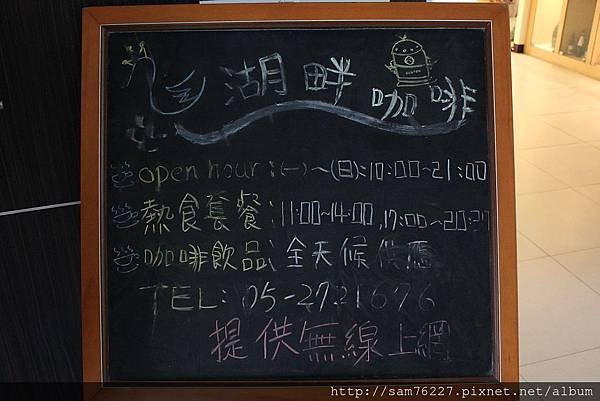 湖畔咖啡
open hour:(一)~(日):10:00~21:00
熱食套餐:11:00~14:00,17:00~20:30
咖啡飲品:全天候供應
TEL:05-2721676
提供無線上網
http://sam76227.pixnet.net/album